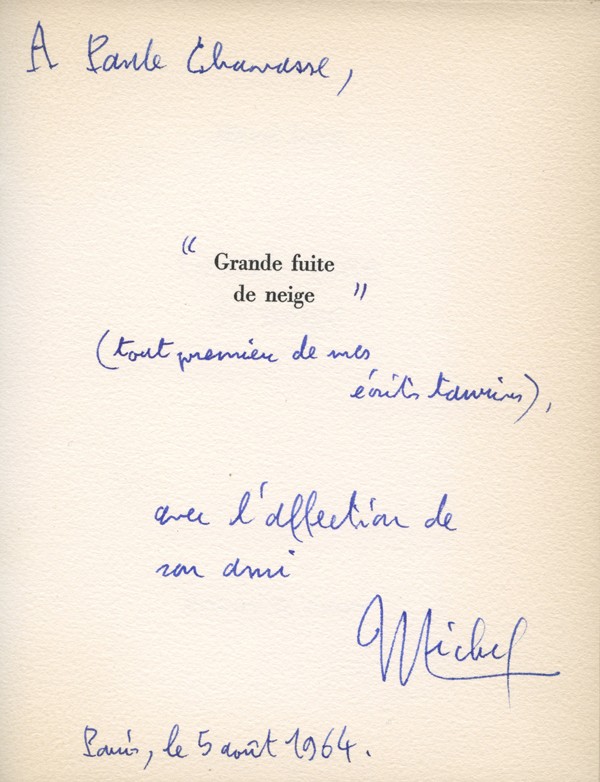 A Paule Chavasse,
"
Grande fuite
de neige "
(tout premier de mes
écrits taurins),
avec l'affection de
son ami
Michel
Paris, le 5 août 1964.